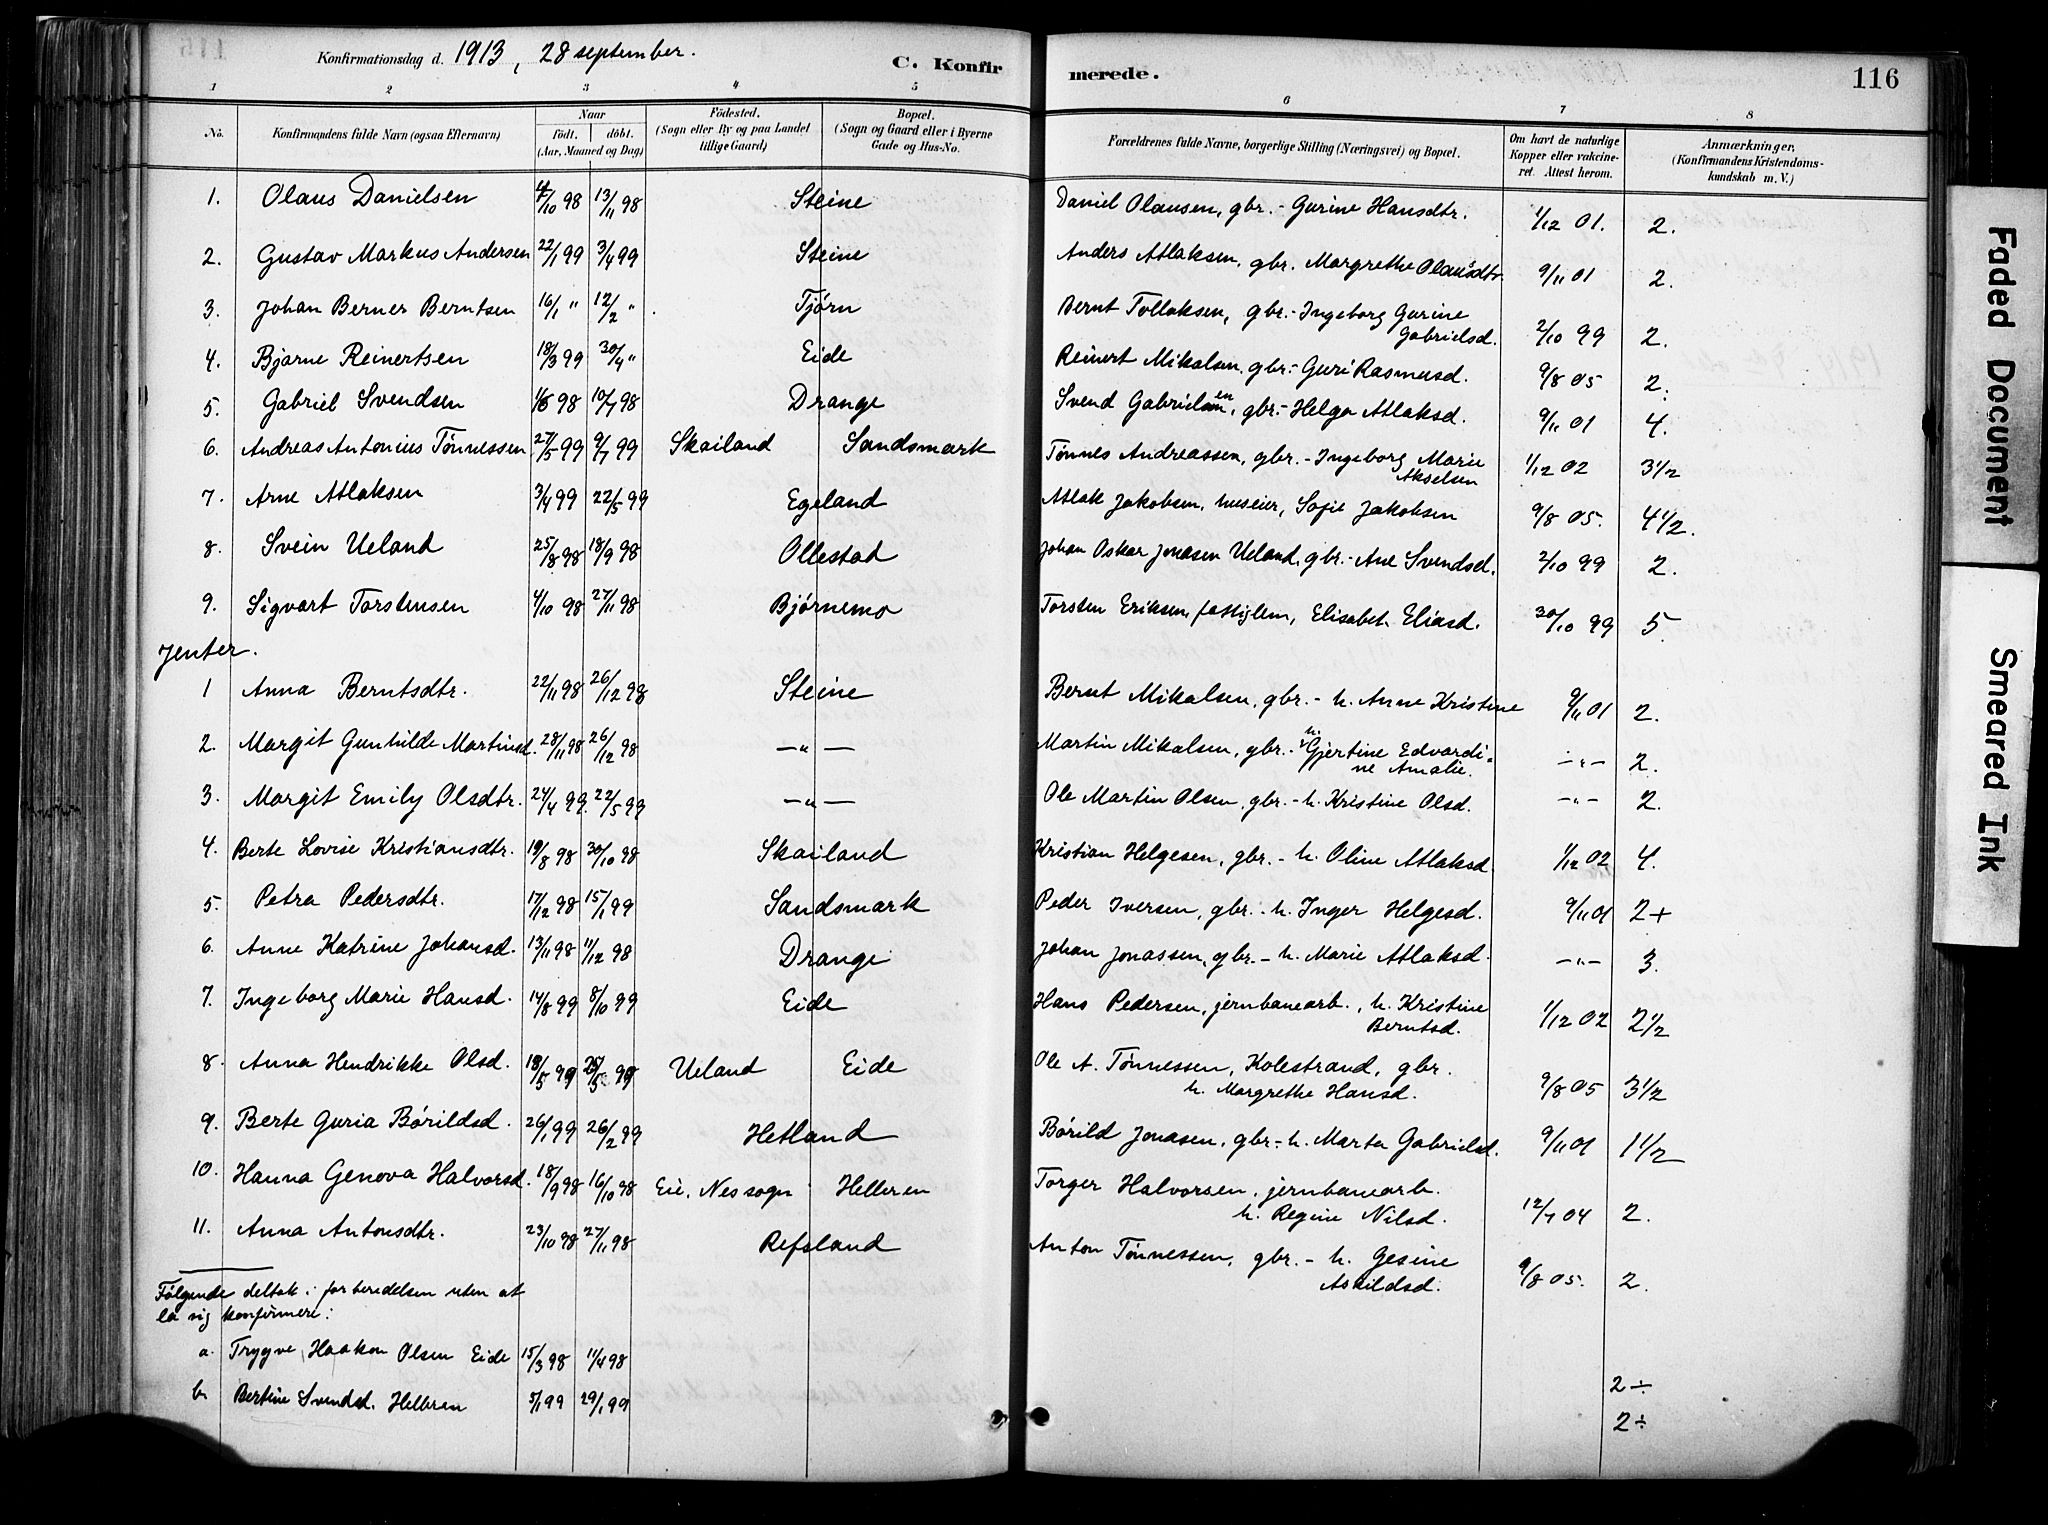 Konfirmationsdag d. 1913, 28 september. C. Konfirmerede. 116
1 2 3 4 5 6 7 8
No. Konfirmandens fulde Navn (ogsaa Efternavn) Naar født. døbt. (Aar, Maaned og Dag) Fødested. (Sogn eller By og paa Landet tillige Gaard) Bopæl. (Sogn og Gaard eller i Byerne Gade og Hus-No. Forældrenes fulde Navne, borgerlige Stilling (Næringsvei) og Bopæl. Om havt de naturlige Kopper eller vaccineret. Attest herom. Anmærkninger. (Konfirmandens Kristendomskundskab m. V.)
1. Olaus Danielsen 4/10 98 13/11 98 Steine Daniel Olausen, gbr. - Gurine Hansdtr. 1/12 01. 2.
2. Gustav Markus Andersen 22/1 99 3/4 99 Steine Anders Atlaksen, gbr. Margrethe Olausdtr 9/11 01 2.
3. Johan Berner Berntsen 16/1 " 12/2 " Tjørn Bernt Tollaksen, gbr. - Ingeborg Gurine Gabrielsd. 2/10 99 2.
4. Bjarne Reinertsen 18/3 99 30/4 " Eide Reinert Mikalsen, gbr. - Guri Rasmusd. 9/8 05 2.
5. Gabriel Svendsen 1/6 98 10/7 98 Drange Svend Gabrielsen, gbr. - Helga Atlaksd. 9/11 01 4.
6. Andreas Antonius Tønnessen 27/5 99 9/7 99 Skailand Sandsmark Tønnes Andreassen, gbr. - Ingeborg Marie Akselsen 1/12 02 3 1/2
7. Arne Atlaksen 3/4 99 22/5 99 Egeland Atlak Jakobsen, huseier, Sofie Jakobsen 9/8 05. 4 1/2.
8. Svein Ueland 25/8 98 18/9 98 Ollestad Johan Oskar Jonasen Ueland, gbr. - Ane Svendsd. 2/10 99 2.
9. Sigvart Torstensen 4/10 98 27/11 98 Bjørnemo Torsten Eriksen, fattiglem, Elisabet Eliasd. 30/10 99 5.
Jenter.
1 Anna Berntsdtr. 22/11 98 26/12 98 Steine Bernt Mikalsen, gbr. - h. Anne Kristine 9/11 01 2.
2. Margit Gunhilde Martinsd. 28/11 98 26/12 98 —"— Martin Mikalsen, gbr. - h. Gjertine Edvardine Amalie. —"— 2.
3. Margit Emily Olsdtr. 24/4 99. 22/5 99 —"— Ole Martin Olsen, gbr. - h. Kristine Olsd. —"— 2.
4. Berte Lovise Kristiansdtr. 19/8 98 30/10 98 Skailand Kristian Helgesen, gbr. - h. Oline Atlaksd. 1/12 02 4.
5. Petra Pedersdtr. 17/12 98 15/1 99 Sandsmark Peder Iversen, gbr. - h. Inger Helgesd. 9/11 01 2+
6. Anne Katrine Johansd. 13/11 98 11/12 98 Drange Johan Jonassen, gbr. - h. Marie Atlaksd. —"— 3.
7. Ingeborg Marie Hansd. 14/8 99 8/10 99 Eide Hans Pedersen, jernbanearb., h. Kristine Berntsd. 1/12 02 2 1/2
8. Anna Hendrikke Olsd. Ueland Eide Ole A. Tønnessen, Kolestrand, gbr. h. Margrethe Hansd. 9/8 05 3 1/2
9. Berte Guria Børildsd. 26/1 99 26/2 99 Hetland Børild Jonasen, gbr. - h. Marta Gabrielsd. 9/11 01 1 1/2
10. Hanna Genova Halvorsd. 18/9 98 16/10 98 Eie, Nes sogn Helleren Torger Halvorsen, jernbanearb. h. Regine Nilsd. 12/7 04 2.
11. Anna Antonsdtr. 23/10 98 27/11 98 Refsland Anton Tønnessen, gbr. - h. Gesine Askildsd. 9/8 05. 2.
Følgende deltok i forberedelsen uten at
la sig konfirmere:
a. Trygve Haakon Olsen Eide 15/3 98 11/4 98 2÷
b. Bertine Svendsd. Helleren 5/1 99 29/1 99 2÷
Faded Document
Smeared Ink